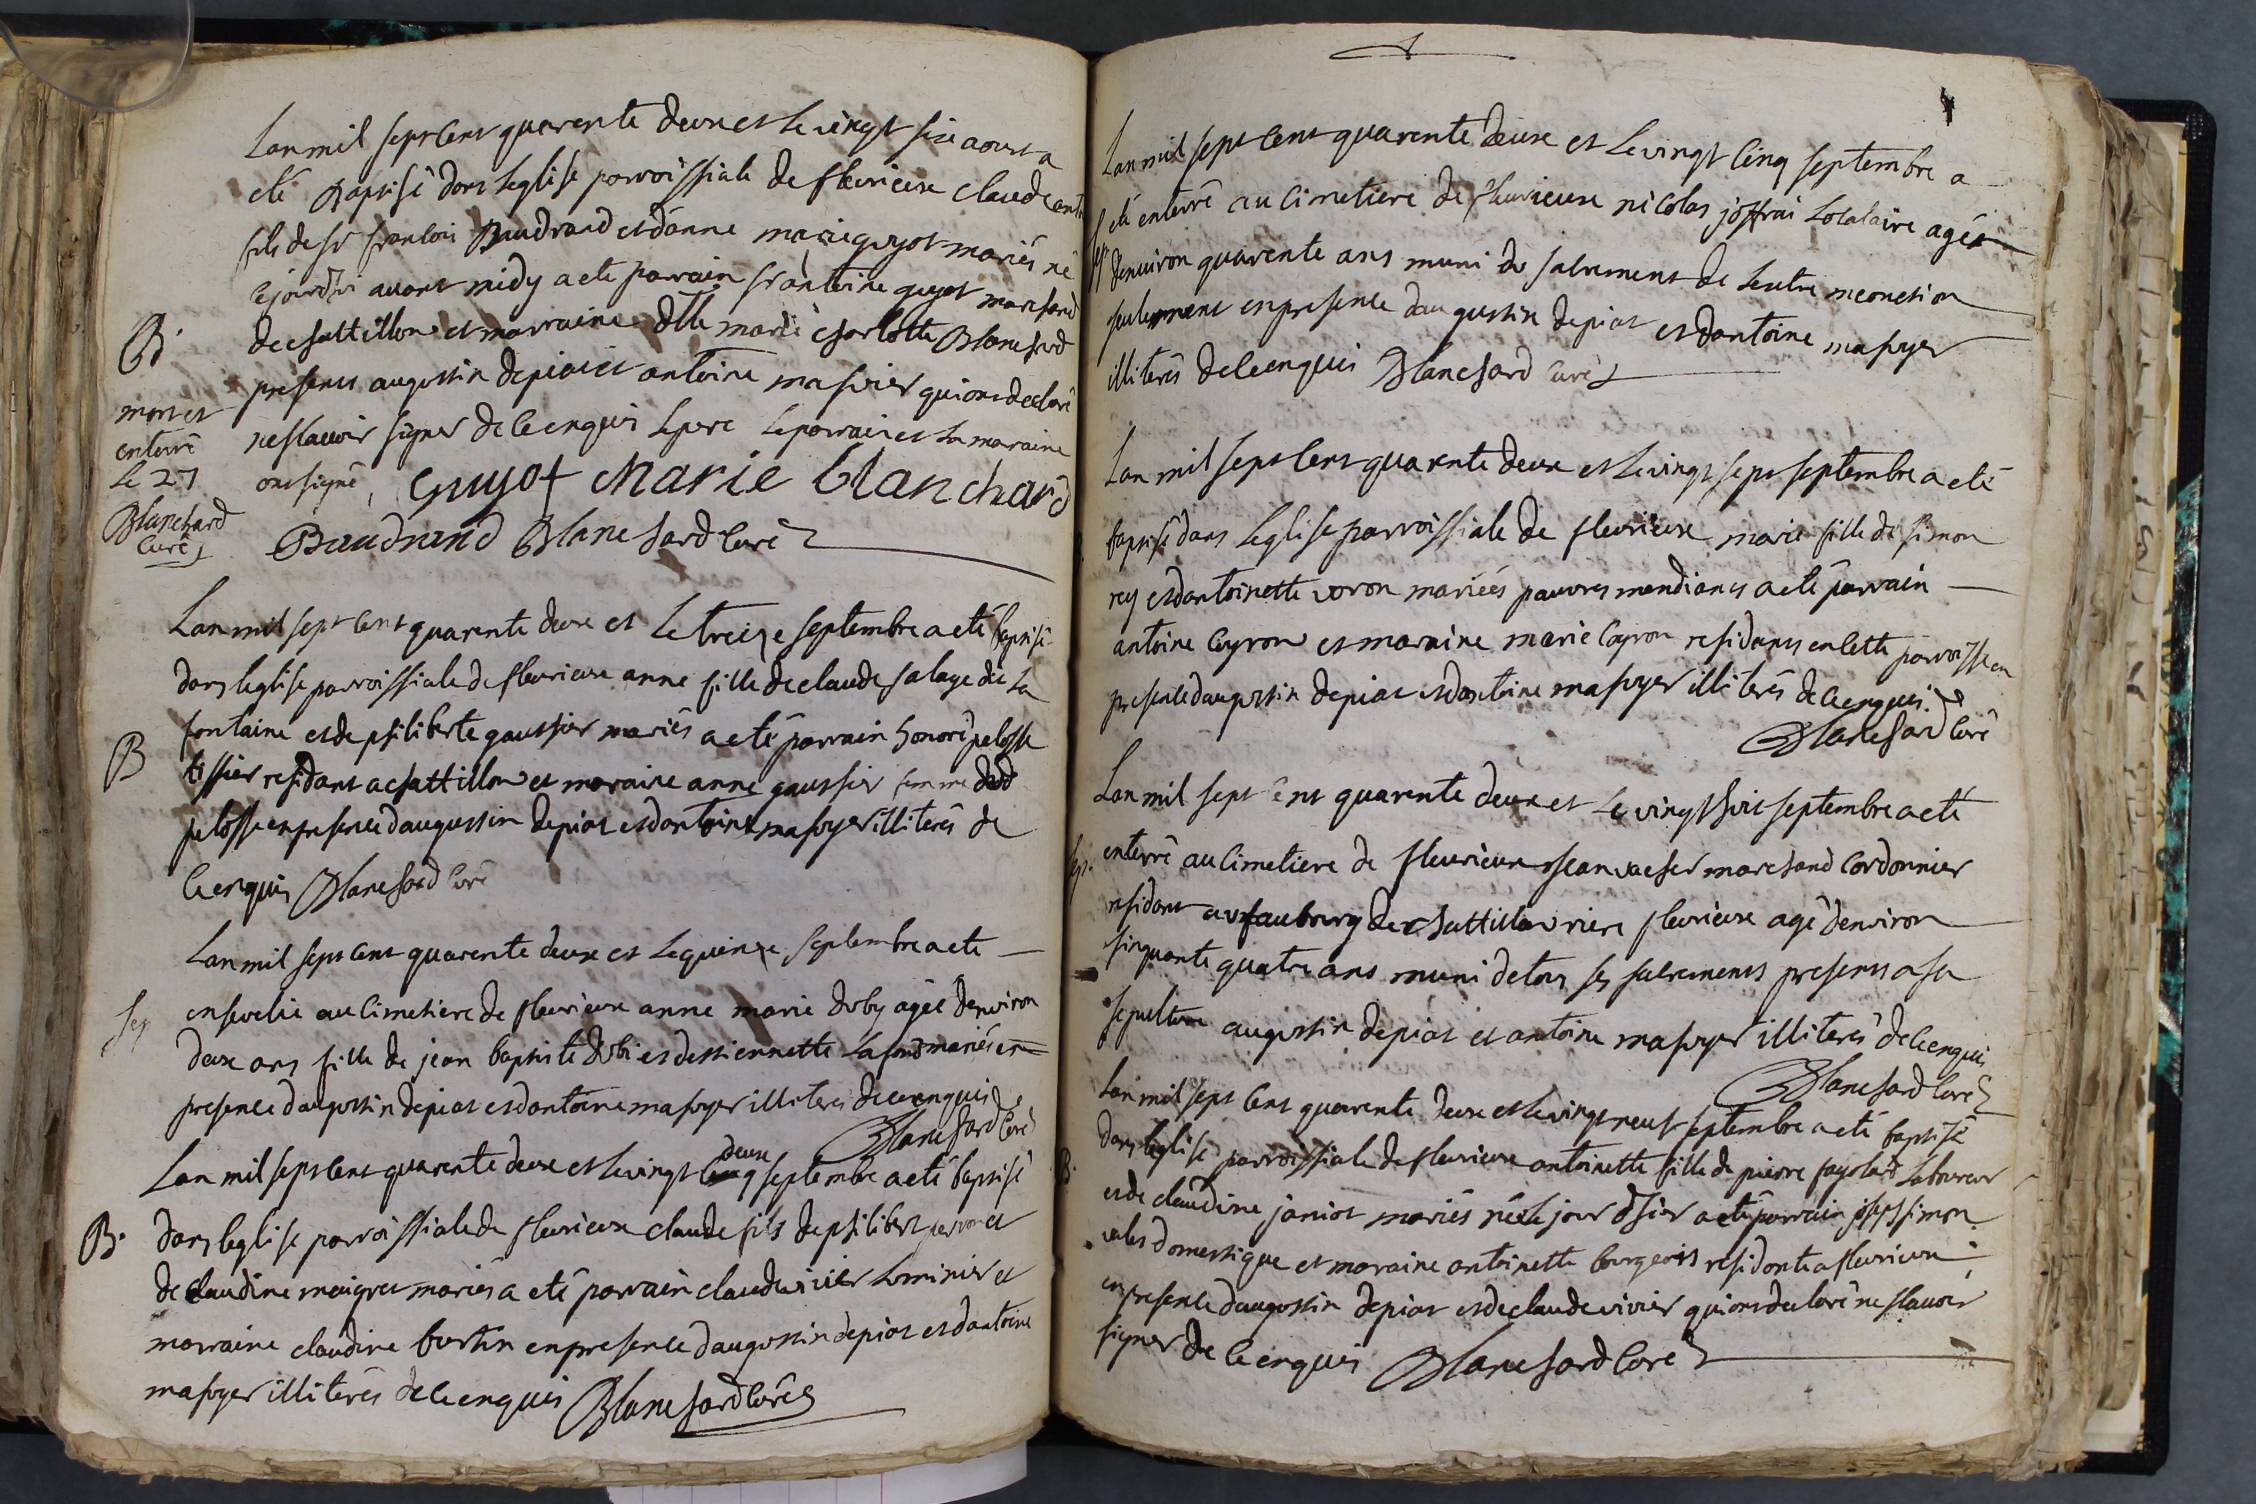 Lan mil sept cent quarente deux et le vingt six aoust a
eté Baptisé dans leglise parroissiale de fleurieux claude
fils de sr francois Baudrand et danne marie guyot mariés né
cejourdhui avant midy a eté parrain sr antoine guyot marchand
de chattillon et marraine dlle marie charlotte Blanchard
B.
presents augustin depiat et antoine mahuier qui ont declaré
mort et
enterré
le 27
Blanchard
curé
ne scavoir signer de ce enquis le pere le parrain et la maraine
ont signé, Guyot Marie blanchard
Baudrand Blanchard curé
Lan mil sept cent quarente deux et le treize septembre a eté baptisé
dans leglise parroissiale de fleurieux anne fille de claude salage dit la
fontaine et de philiberte gaussier mariés a eté parrain honoré pelosse
B
tissier residant a chattillon et maraine anne gaussier femme dud
pelosse en presence daugustin depiat et dantoine mahuyer illiterés de
ce enquis Blanchard curé
Lan mil sept cent quarente deux et le quinze septembre a eté
Sep
ensevelie au cimetiere de fleurieux anne marie duby agée denviron
deux ans fille de jean baptiste dubi et destiennette lafond mariés en
presence daugustin depiat et dantoine mahuyer illiteres de ce enquis
Blanchard curé
Lan mil sept cent quarente deux et le vingt deux septembre a eté baptisé
B.
dans leglise parroissiale de fleurieux claude fils de philibert perron et
de claudine maigret mariés a eté parrain claude vivier luminier et
marraine claudine burtin en presence daugustin depiat et dantoine
mahuyer illiterés de ce enquis Blanchard curé
Lan mil sept cent quarente deux et le vingt cinq septembre a
eté enterré au cimetiere de fleurieux nicolas joffrai locataire agé
Sep
denviron quarente ans muni du sacrement de lextre meonction
seulement en presence daugustin depiat et dantoine mahuyer
illiterés de ce enquis Blanchard curé
Lan mil sept cent quarente deux et le vingt sept septembre a eté
baptisé dans leglise parroissiale de fleurieux marie fille de simon
rey et dantoinette voron mariées pauvres mendiants a eté parrain
antoine Coyron et maraine marie Coyron residants en cette parroisse en
presence daugustin depiat et dantoine mahuyer illiterés de ce enquis.
Blanchard curé
Lan mil sept cent quarente deux et le vingt huit septembre a eté
Sep.
enterré au cimetiere de fleurieux jean vacher marchand cordonnier
residant au faubourg de chattillon riere fleurieux agé denviron
sinquante quatre ans muni de tous ses sacrements presents a sa
sepulture augustin depiat et antoine mahuyer illiterés de ce enquis
Blanchard curé
Lan mil sept cent quarente deux et le vingt neuf septembre a eté baptisé
B.
dans leglise parroissiale de fleurieux antoinette fille de pierre fayolard laboureur
et de claudine janiot mariés née le jour dhier a eté parrain joseph simon
valet domestique et maraine antoinette bourgeois residente a fleurieux
en presence daugustin depiat et de claude vivier qui ont declaré ne scavoir
signer de ce enquis Blanchard curé